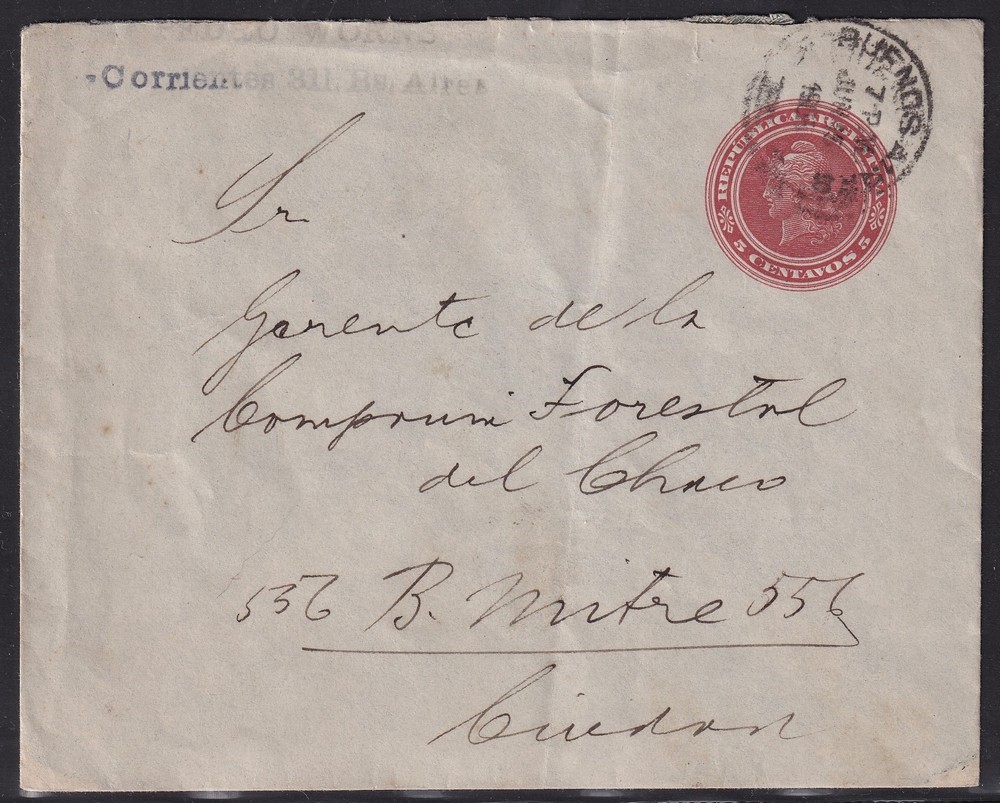 PEDRO WORMS
Corrientes 311, Bs. Aires
BUENOS A
REPUBLICA ARGENTINA
5 CENTAVOS 5
Sr
Gerente de la
Compania Forestal
del Chaco
556 B. Mitre 556
Ciudad